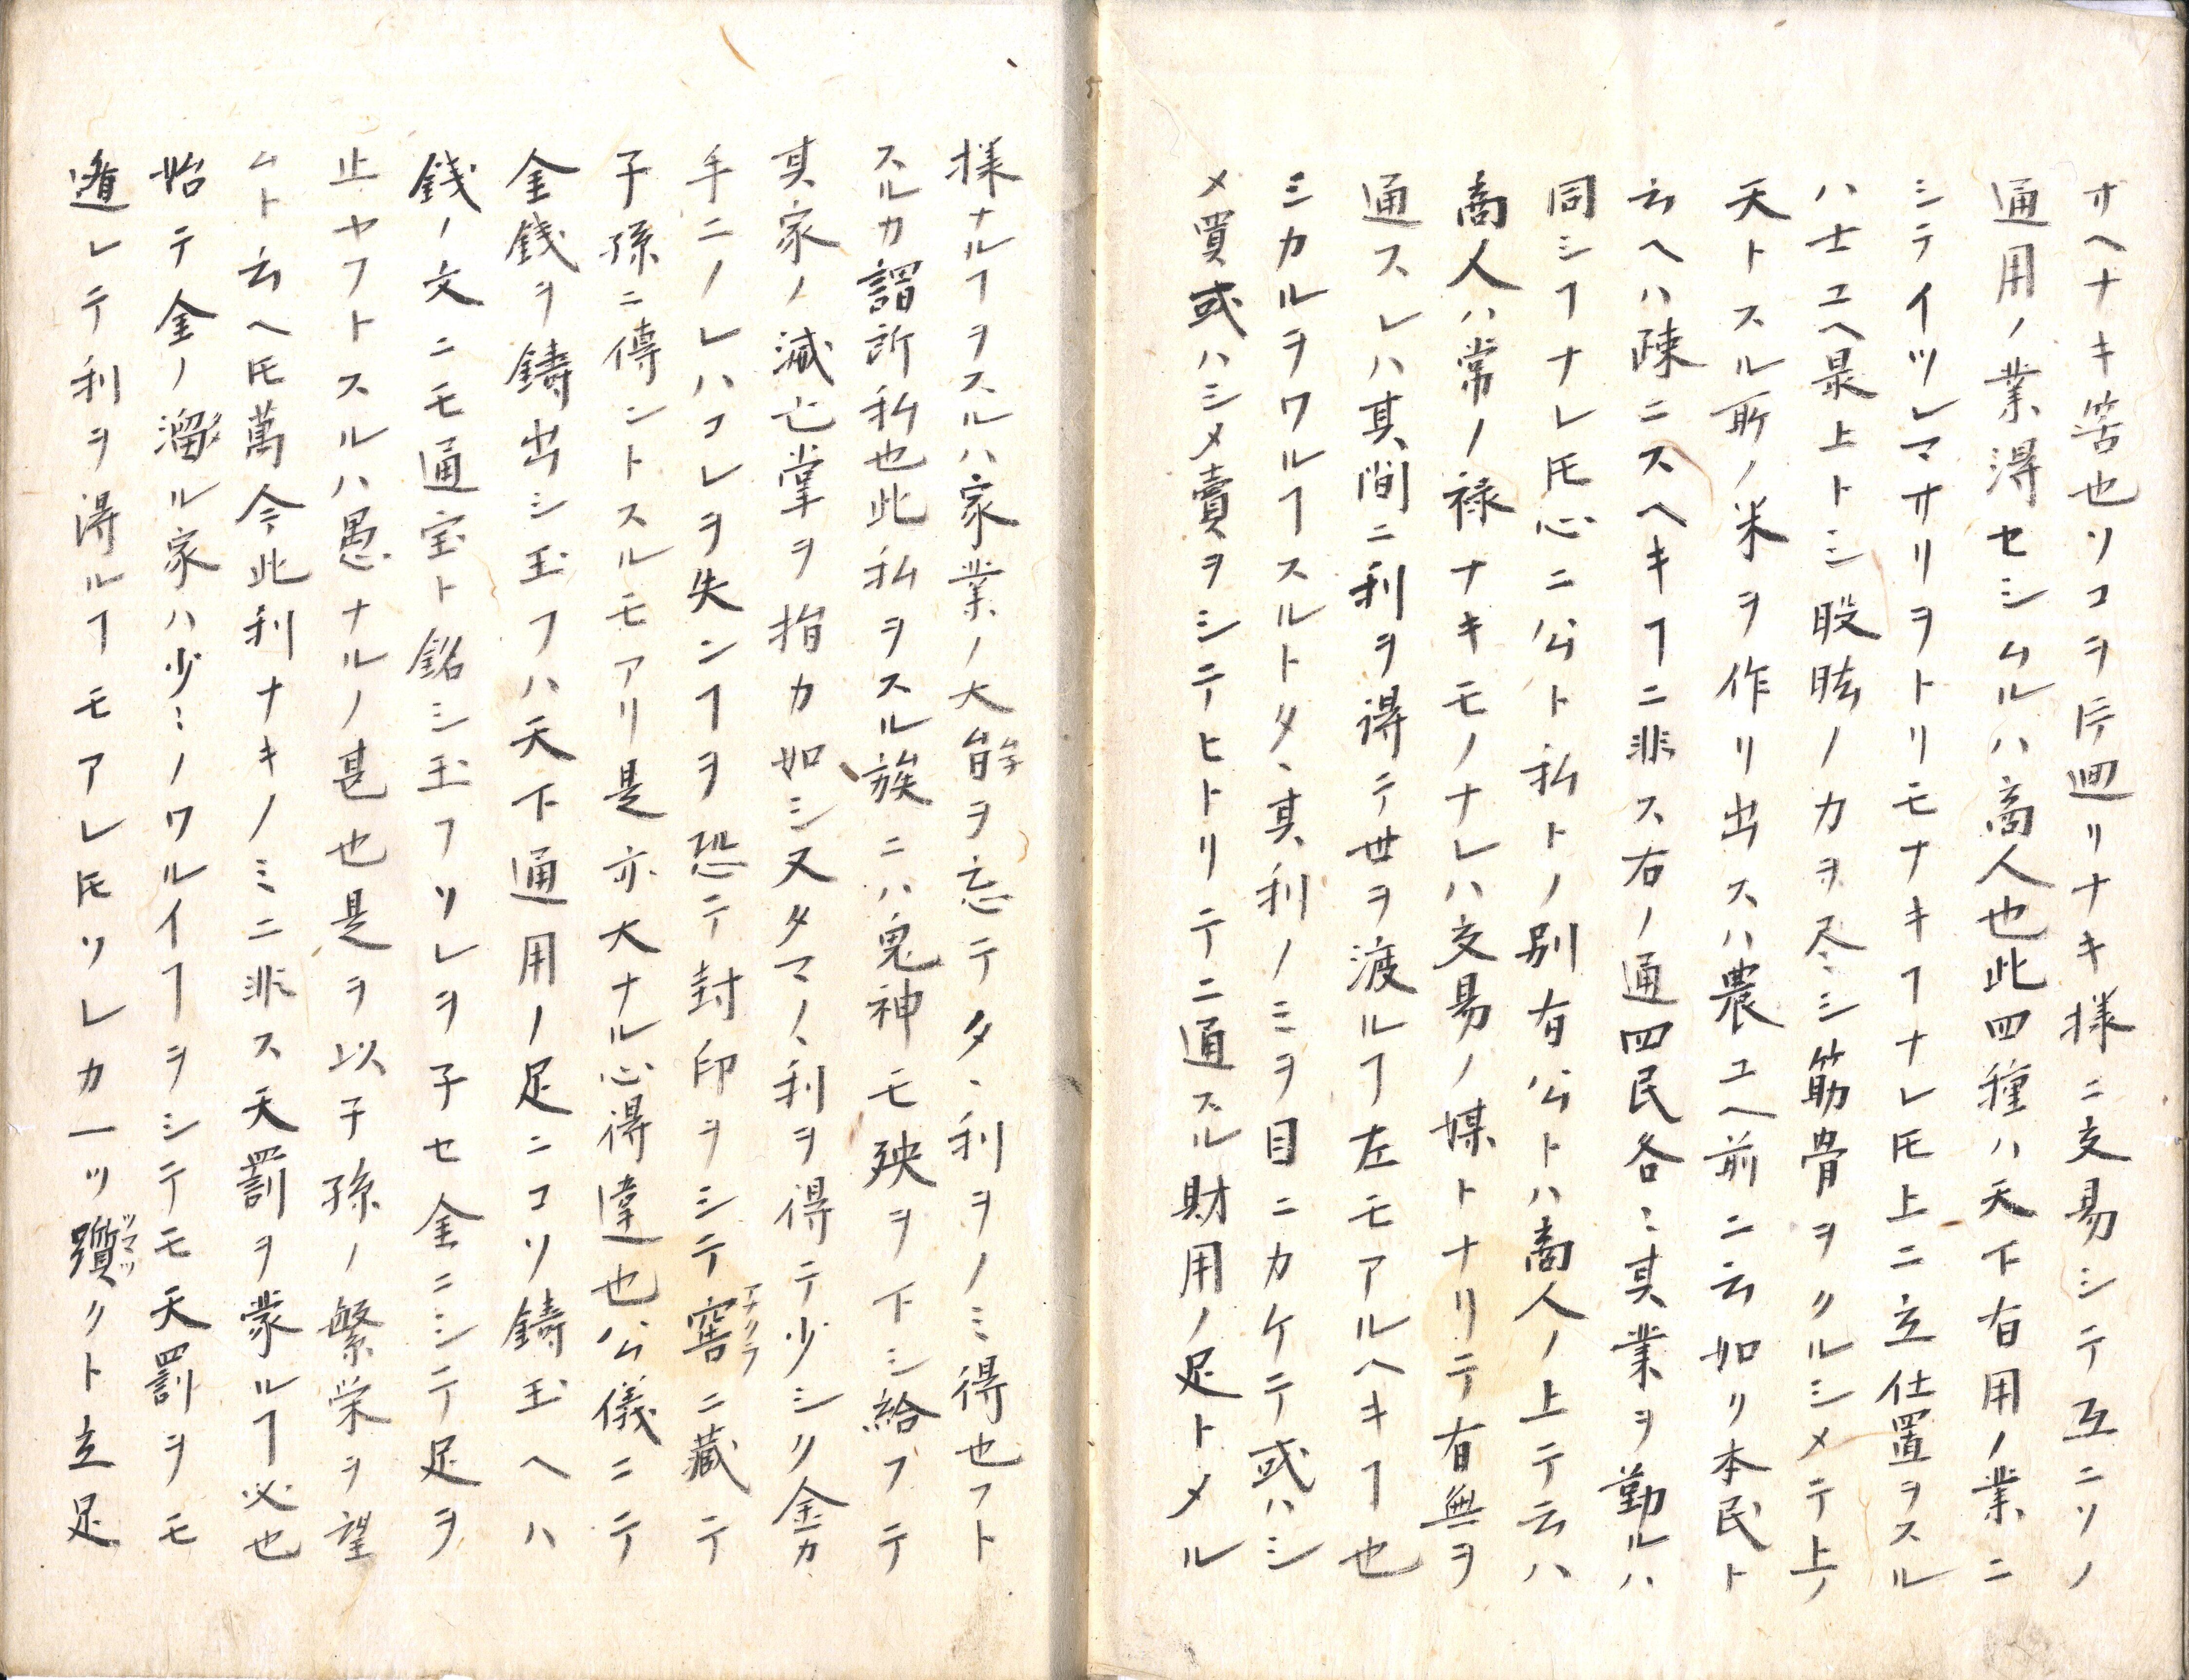 オヘナキ筈也ソコヲ片廻リナキ様ニ交易シテ互ニソノ
通用ノ業得セシムルハ商人也此四種ハ天下有用ノ業ニ
シテイツレマサリヲトリモナキヿナレ𪜈上ニ立仕置ヲスル
ハ士ユヘ最上トシ股肱ノカヲ尽シ筋骨ヲクルシメテ上ノ
天トスル所ノ米ヲ作リ出スハ農ユヘ前ニ云如リ本民ト
云ヘハ疎ニスヘキヿニ非ス右ノ通四民各ミ其業ヲ勤ルハ
同シヿナレ𪜈心ニ公ト私トノ別有公トハ商人ノ上テ云ハ
商人ハ常ノ禄ナキモノナレハ交易ノ媒トナリテ有無ヲ
通スレハ其間ニ利ヲ得テ世ヲ渡ルヿ左モアルヘキヿ也
ミカルヲワルヿスルトタヽ其利ノミヲ目ニカケテ或ハシ
メ買或ハシメ賣ヲシテヒトリテニ通スル財用ノ足トメル
様ナルヿヲスルハ家業ノ大旨ヲ忘テタヽ利ヲノミ得也フト
スルカ謂所私也此私ヲスル族ニハ鬼神モ殃ヲ下シ給フテ
其家ノ滅亡掌ヲ指カ如シ又タマノヽ利ヲ得テ少シク金カ
手ニノレハコレヲ失ンヿヲ恐テ封印ヲシテ窖ニ藏テ
子孫ニ傳ントスルモアリ是亦大ナル心得違也公儀ニテ
金銭ヲ鋳出シ玉フハ天下通用ノ足ニコソ鋳玉ヘハ
銭ノ文ニモ通宝ト銘シ玉フソレヲ子セ金ニシテ足ヲ
止ヤフトスルハ愚ナルノ甚也是ヲ以子孫ノ繁栄ヲ望
ムト云ヘ𪜈萬今此利ナキノミニ非ス天罰ヲ蒙ルヿ必也
始テ金ノ溜ル家ハ少ミノワルイヿヲシテモ天罰ヲモ
遁レテ利ヲ得ルヿモアレ𪜈ソレカ一ツ躓クト立足